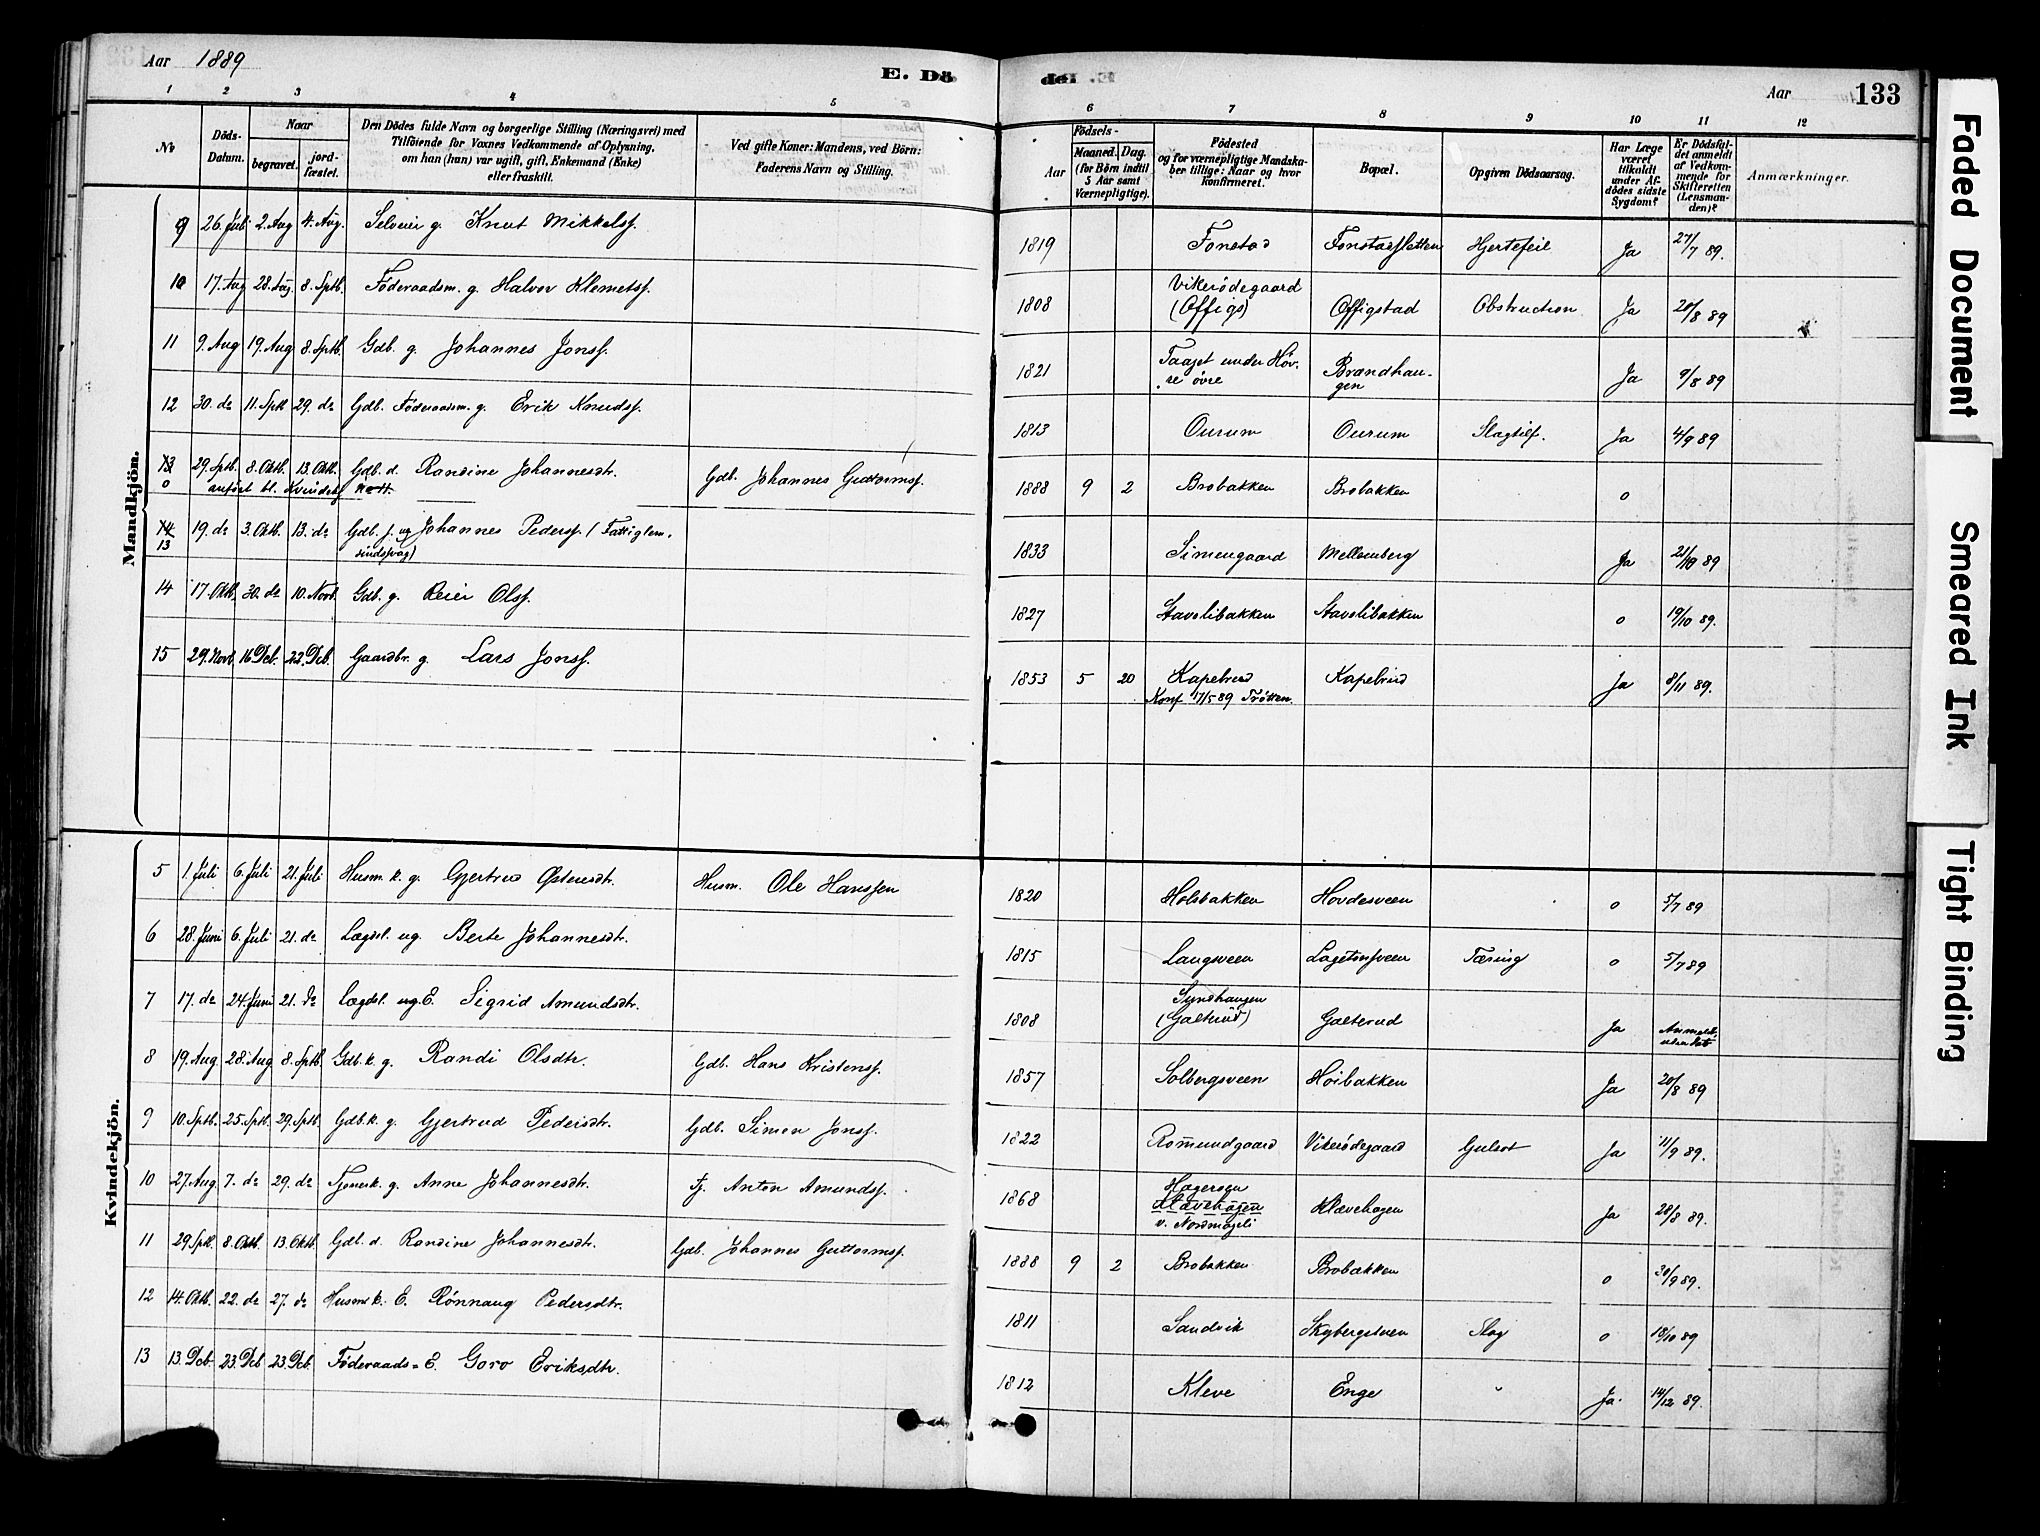 Aar 1889 E. Dö
1 2 3 4 5
No
Döds-Datum.
Naar
begravet.
jord-fæstet.
Den Dödes fulde Navn og borgerlige Stilling (Næringsvei) med
Tilföiende for Voxnes Vedkommende af Oplysning,
om han (hun) var ugift, gift, Enkemand (Enke)
eller fraskilt.
Ved gifte Koner: Mandens, ved Börn:
Faderens Navn og Stilling.
de. Aar 133
6 7 8 9 10 11 12
Födsels-
Aar
Maaned. Dag.
(for Börn indtil
5 Aar samt
Værnepligtige).
Födested
og for værnepligtige Mandska-
ber tillige: Naar og hvor
konfirmeret.
Bopæl.
Opgiven Dödsaarsag.
Har Læge
været
tilkaldt
under Af-
dödes sidste
Sygdom?
Er Dödsfal-
det anmeldt
af Vedkom-
mende for
Skifteretten
(Lensman-
den)?
Anmærkninger.
Mandkjön.
9 26. Juli 2. Aug 4. Aug. Selveier g. Knut Mikkelsf. 1819 Fonstad Fonstadsletten Hjertefeil Ja 27/7 89.
10 17. Aug 28. Aug. 8. Sptb. Föderaadsm. g. Halvor Klemetsf. 1808 Vikerödegaard
(Offigs) Offigstad Obstruction Ja 20/8 89
11 9. Aug 19. Aug 8. Sptb. Gdb. g. Johannes Jonsf. 1821 Taajet under Höv-
re övre Brændhau-
gen Ja 9/8 89
12 30. do 11. Sptb 29. do Gdb. Föderaadsm. g. Erik Knudsf. 1813 Ourum Ourum Slagtilf. Ja 4/9 89
13 29. Sptb. 8. Oktb. 13. Oktb. Gdb. d. Randine Johannesdtr. Gdb. Johannes Guttormsf. 1888 9 2 Brobakken Brobakken o
o anført bl. Kvindekj
14 19. do 3. Oktb. 13. do Gdb. s. ug Johannes Pedersf. (Fattiglem. 1833 Simengaard Mellemberg Ja 21/10 89
13 sindssvag)
14 17. Oktb. 30. do 10. Novb. Gdb. g. Reier Olsf. 1827 Stavslibakken Stavslibakken o 19/10 89.
15 29. Novb 16 Dcb. 22. Dcb. Gaardbr. g. Lars Jonsf. 1853 5 20 Kapelrud Kapelrud Ja 8/11 89.
Konf 17/5 89 Trötten.
Kvindekjön.
5 1. Juli 6. Juli 21. Juli Husm. k. g. Gjertrud Östensdtr. Husm. Ole Hanssen 1820 Holsbakken Hovdesveen o 5/7 89
6 28. Juni 6. Juli 21. do Lægdsl. ug. Berte Johannesdtr. 1815 Langsveen Lagetonsveen Tæring o 5/7 89
7 17. do 24. Juni 21. do Lægdsl. ug. E. Sigrid Amundsdtr. 1808 Synshaugen
(Galterud) Galterud Ja Anmeldt
8 19. Aug. 28. Aug 8. Sptb. Gdb. k. g. Randi Olsdtr. Gdb. Hans Kristensf. 1857 Solbergsveen Höibakken Ja 20/8 89
9 10. Sptb. 25. Sptb. 29. Sptb. Gdb. k. g. Gjertrud Pedersdtr. Gdb. Simen Jonsf. 1822 Romundgaard Vikerödegaard Gulsot Ja 11/9 89.
10 27. Aug 7. do 29. do Tjenerk. g. Anne Johannesdtr. Tj. Anton Amundsf. 1868 Hageröen
Klævehagen
v. Nordmageli Klævehagen Ja 28/8 89.
11 29. Sptb. 8. Oktb. 13. Oktb. Gdb. d. Randine Johannesdtr. Gdb. Johannes Guttormsf. 1888 9 2 Brobakken Brobakken o 30/9 89.
12 14. Oktb. 22. do 27. do Husmk. E. Rönnaug Pedersdtr. 1811 Sandvik Skybergsveen Slag o 18/10 89
13 13. Dcb. 23. Dcb 23. Dcb. Föderaads- E. Goro Eriksdtr. 1812 Kleve Enge " Ja. 14/12 89.
Faded Document
Smeared Ink
Tight Binding